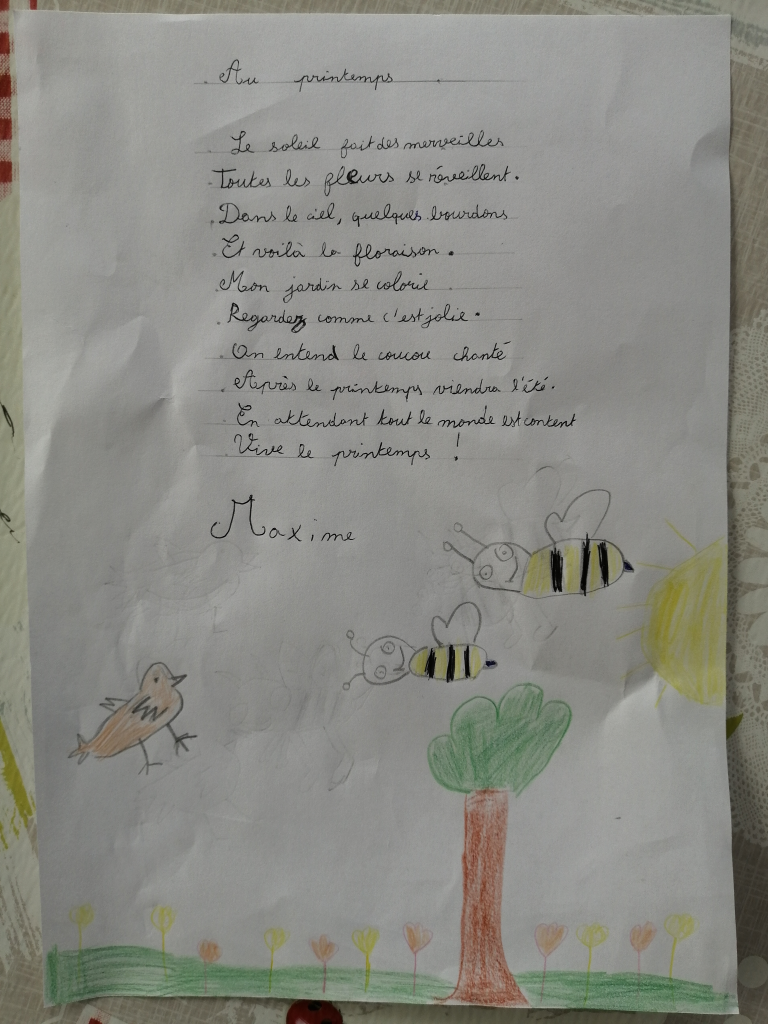 Au printemps
Le soleil fait des merveilles
Toutes les fleurs se réveillent.
Dans le ciel, quelques bourdons
Et voilà la floraison.
Mon jardin se colorie
Regardez comme c'est jolie.
On entend le coucou chanté
Après le printemps viendra l'été.
En attendant tout le monde est content
Vive le printemps !
Maxime